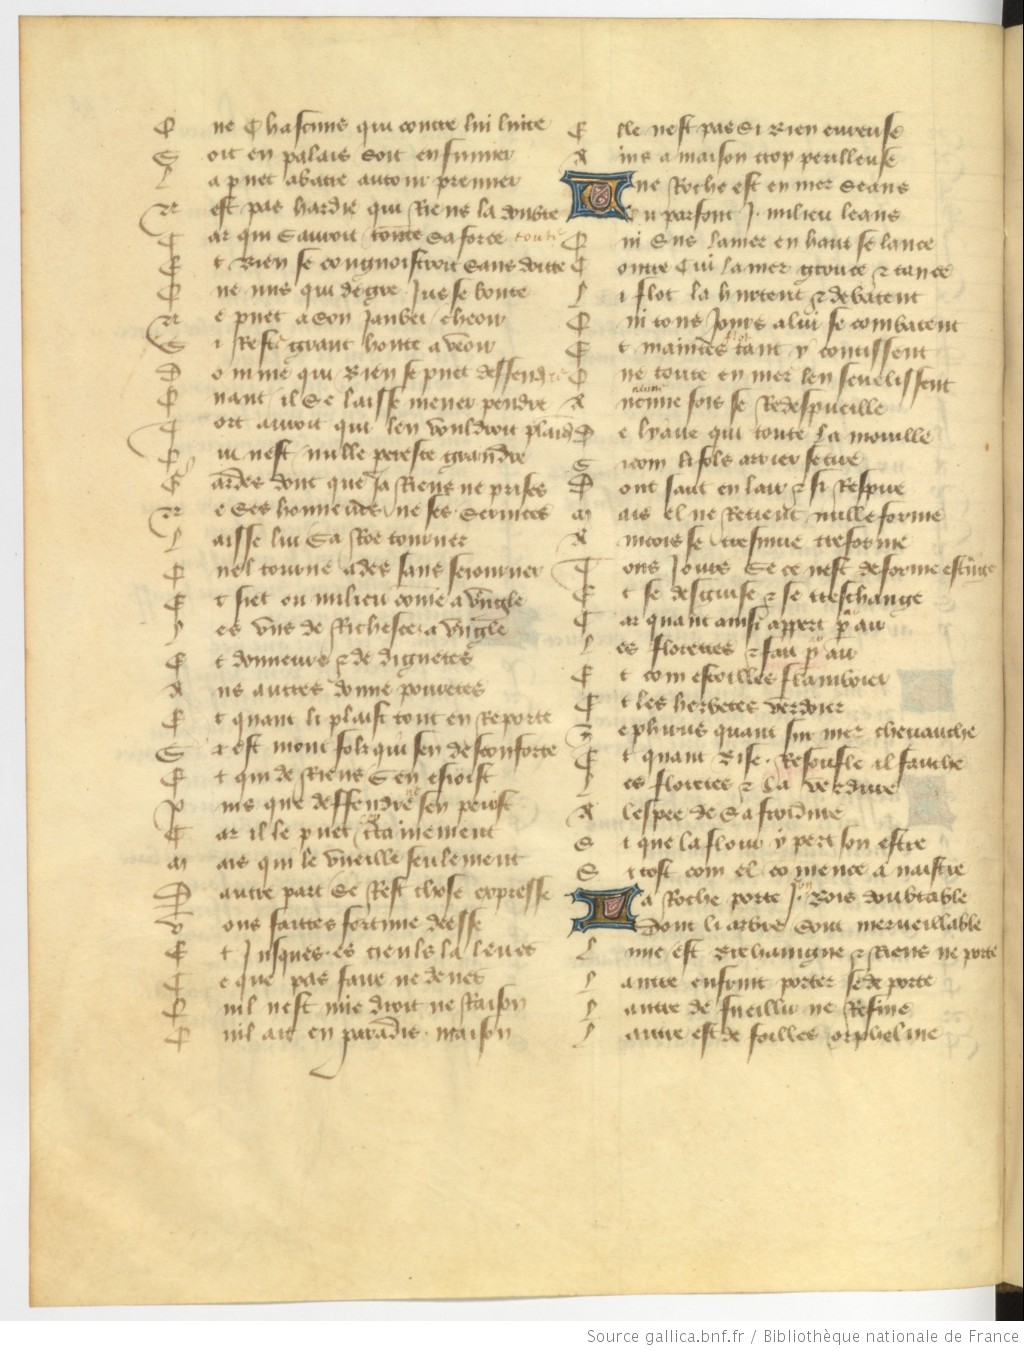 Que Chascuns qui contre lui luite
Soit en palais soit en fumier
La puet abatre au tour premier
Nest pas hardie qui Riens la doubte
Car qui Sauroit toute sa force toute
Et Bien se congnoistroit sans doute
Que nus qui de gre Jus se boute
Ne puet a son Janbet cheoir
Si Rest grant honte a veoir
Domme qui Bien se puet deffendre
Quant il se laisse mener pendre
Tort auroit qui len vouldroit plaindre
Quil nest nulle peresce graindre
Gardes dont que Ja Riens ne prises
Ne Ses honneurs ne ses Services
Laisse lui Sa Roe tourner
Quel tourne ades sans seiourner
Et siet ou milieu come avugle
Les uns de Richesces avugle
Et donneurs et de dignetes
Aus autres donne povretes
Et quant li plaist tout en Reporte
Sest mout fols qui sen desconforte
Et qui de Riens Sen esioist
Puis que deffendre sen peust
Car il le puet certainement
Mais qui le vueille seulement
Dautre part Se Rest chose expresse
Vous faittes fortune deesse
Et Jusques es cieuls la leves
Ce que pas faire ne deves
Quil nest mie droit ne Raison
Quil ait en paradis maison
Elle nest pas Si Bien eureuse
Ains a maison trop perilleuse
Une Roche est en mer Seans
Ou parfont J. milieu leans
Qui Sus la mer en haut se lance
Contre Cui la mer grouce et tance
Li flot la hurtent et debatent
Qui tous Jours a lui se combatent
Et maintes tant y cotissent
Que toute en mer len sevelissent
Aucune fois se Redespueille
De lyaue qui toute La moville
Sicom li flos arrier se tire
Dont saut en lair et si Respire
Mais el ne Retient nulle forme
Aincois se tresmue tresforme
Tous Jours Se ce nest de forme estrange
Et se desguise et se treschange
Car quant ainsi appert par air
Les floretes et fait par air
Et com estoilles flamboier
Et les herbetes verdoier
Zephirus quant sur mer chevauche
Et quant Bise Resoufle il fauche
Les floretes et La verdure
A lespee de Sa froidure
Si que la flour y pert son estre
Si tost com el comence a naistre
La Roche porte J. Bois doubtable
Dont li arbre sont merveillable
Lune est Brehaingne et Riens ne porte
Lautre en fruit porter se deporte
Lautre de fueillir ne Refine
Lautre est de foilles orpheline
Source gallica.bnf.fr / Bibliothèque nationale de France